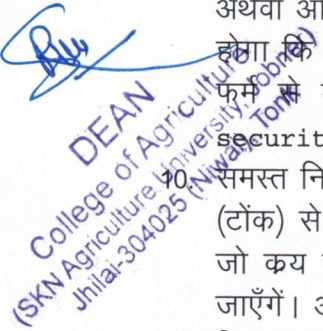 अथवा आ
होगा कि
फर्म से
securit
10. समस्त नि
(टोंक) से
जो कय
जाएँगें।
DEAN
College of Agriculture
(SKN Agriculture University, Jobner)
Jhilai-304025 (Niwai), Tonk